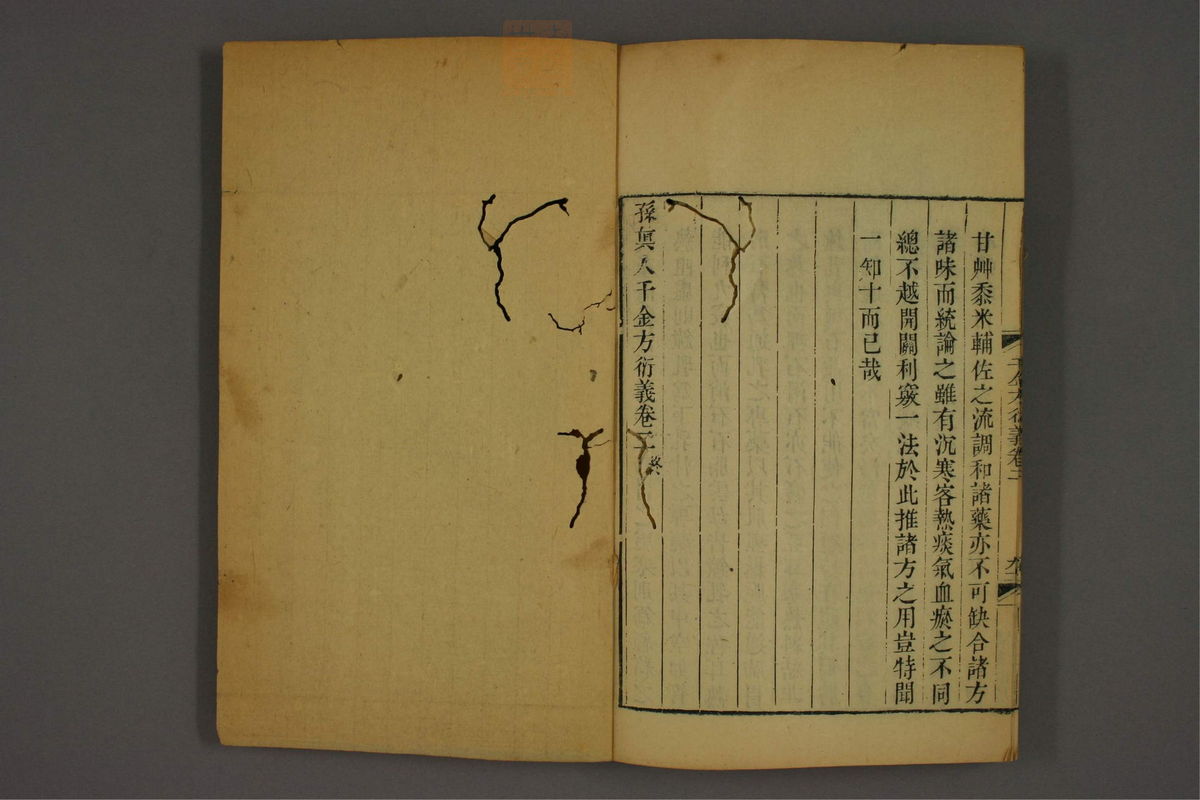 甘艸黍米輔佐之流調和諸藥亦不可缺合諸方
諸味而統論之雖有沉寒客熱痰氣血瘀之不同
總不越開關利竅一法於此推諸方之用豈特聞
一知十而已哉
孫眞人千金方衍義卷二終
千金方衍義卷二